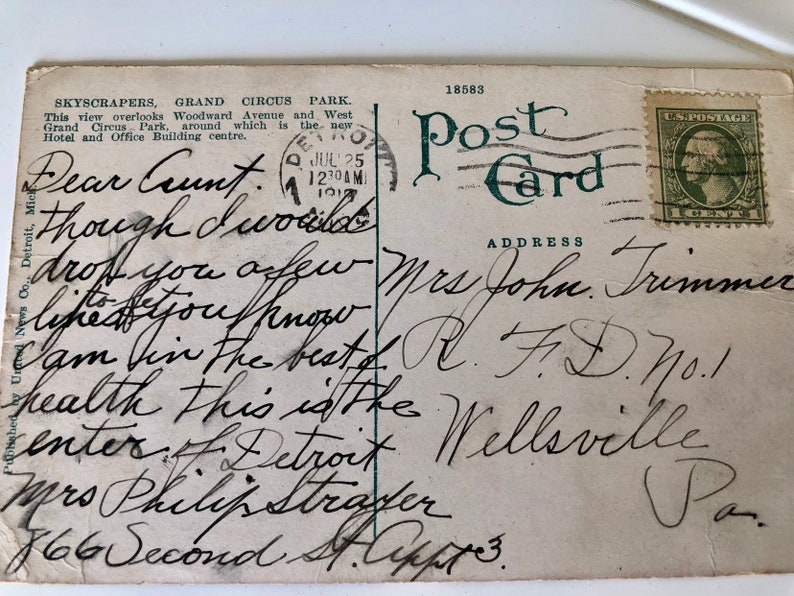 SKYSCRAPERS, GRAND CIRCUS PARK.
This view overlooks Woodward Avenue and West
Grand Circus Park, around which is the new
Hotel and Office Building centre.
Dear Aunt.
though I would
drop you a few
lines to let you know
I am in the best of
health this is the
center of Detroit
Mrs Philip Strayer
866 Second St. Appt 3.
Published by United News Co., Detroit, Mich.
18583
Post Card
DETROIT
JUL 25
1230AM
U.S. POSTAGE
1 CENT
ADDRESS
Mrs John. Trimmer
R. F. D. No. 1
Wellsville
Pa.